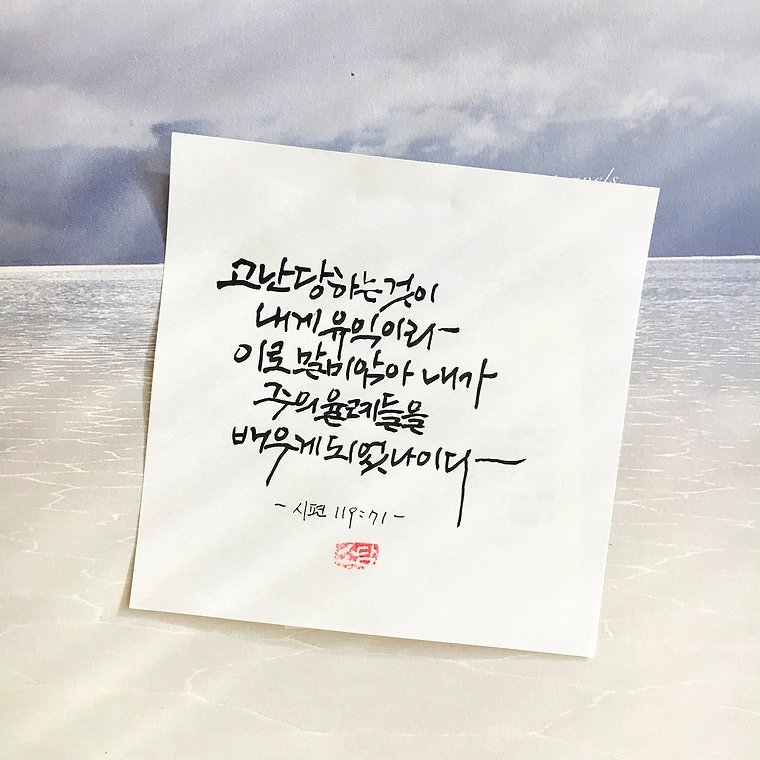 고난당하는것이
내게유익이라
이로말미암아 내가
주의율례들을
배우게되었나이다
- 시편 119:71 -